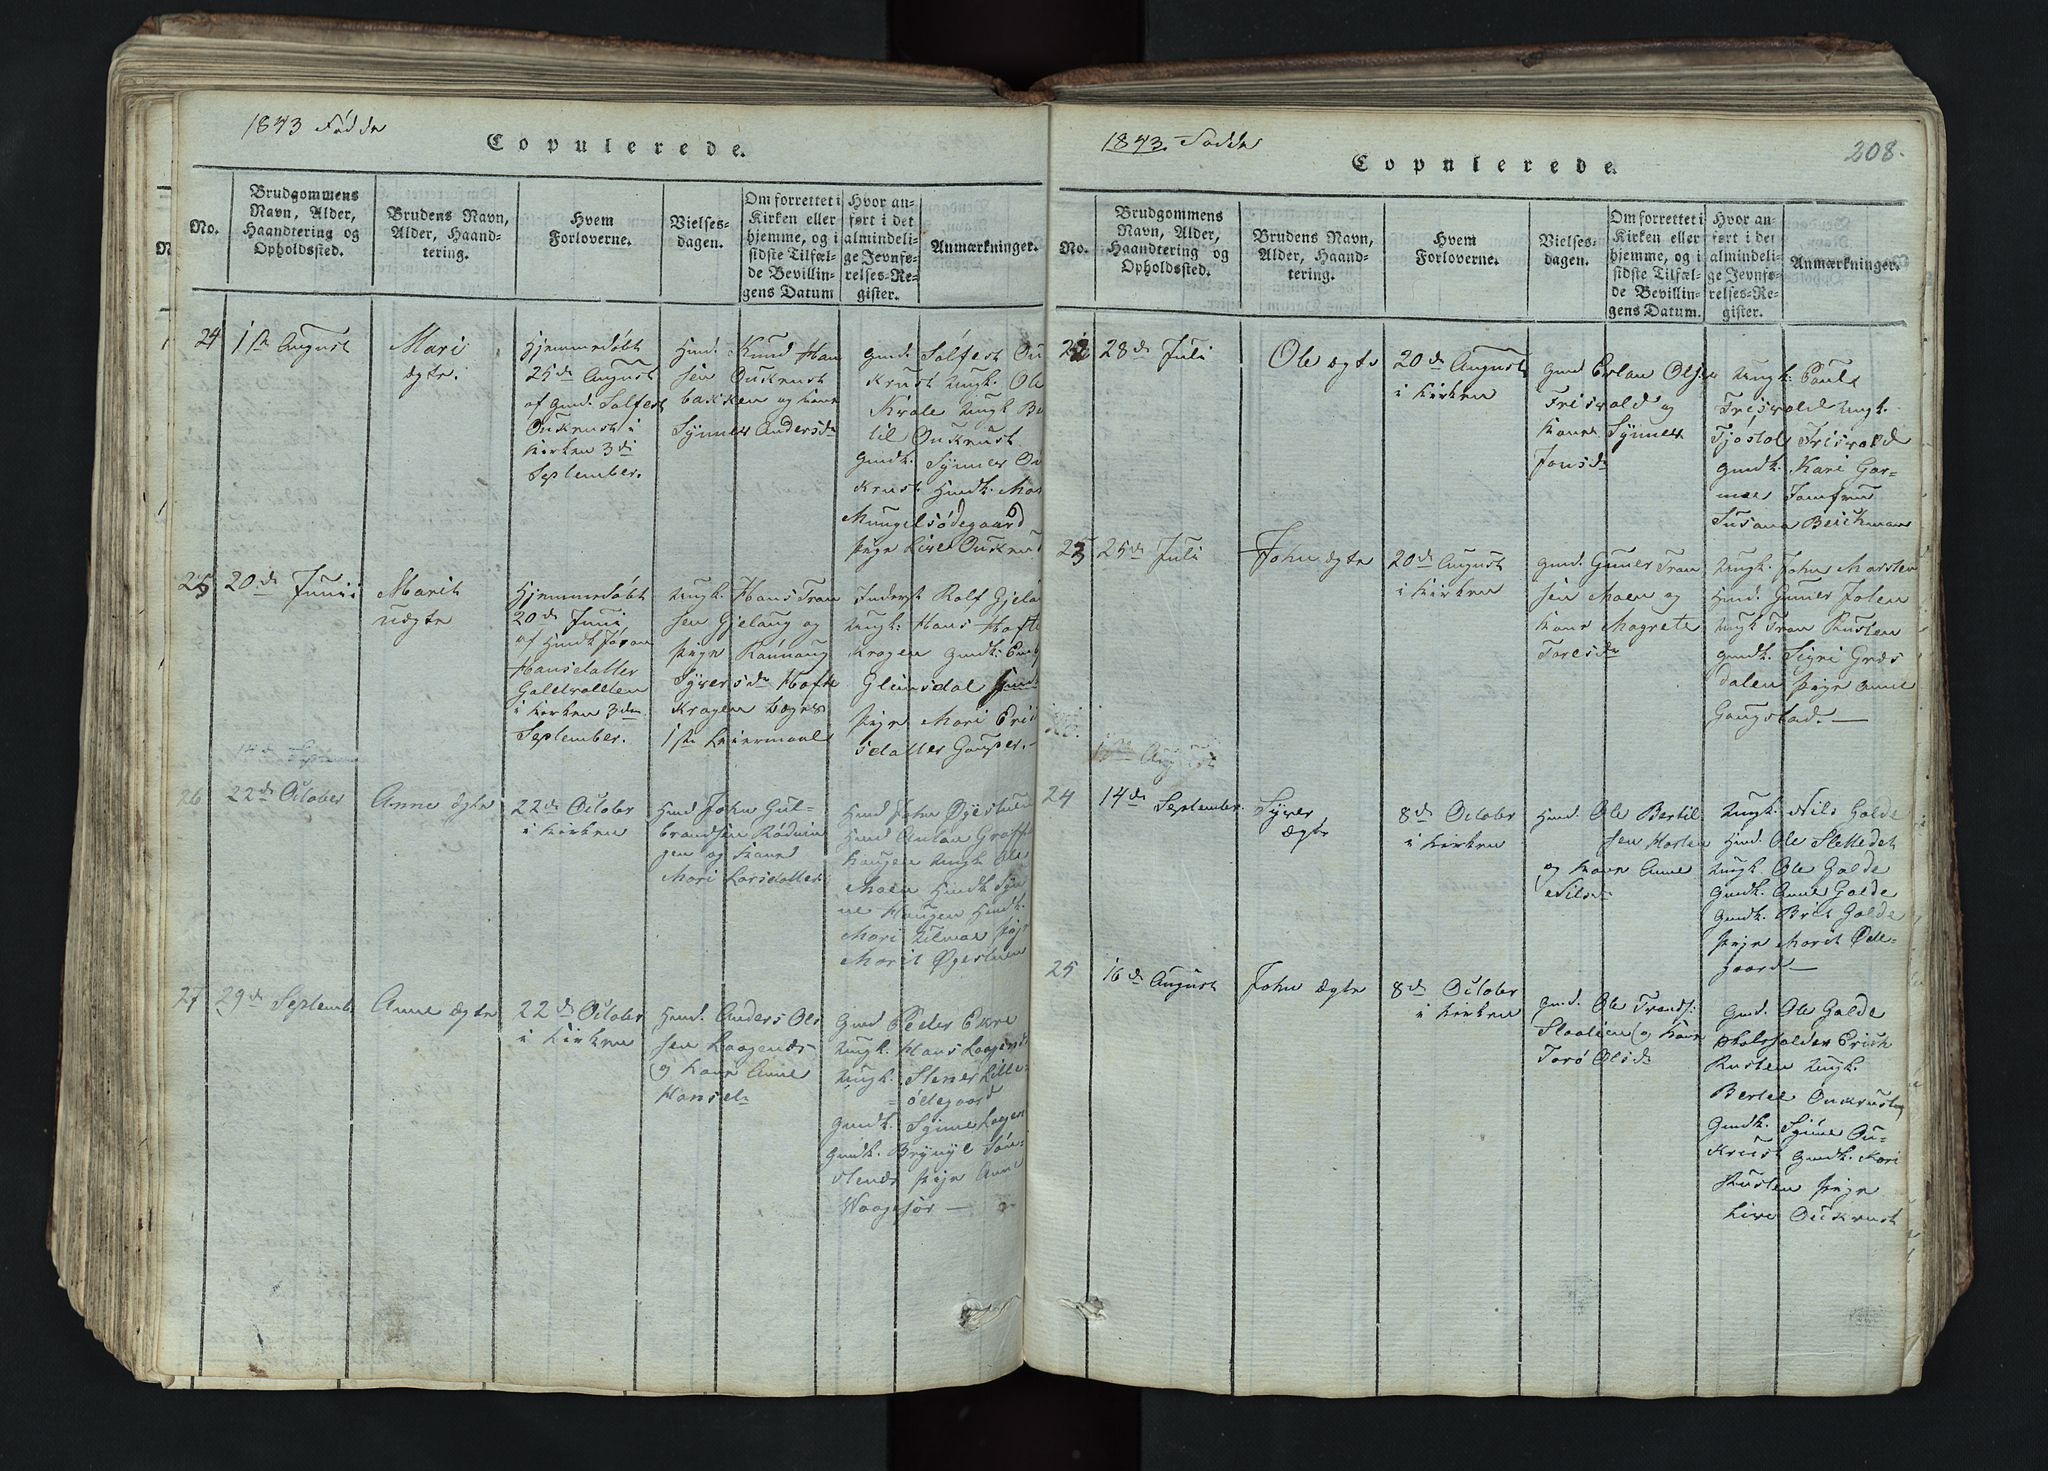 1843 Födde
Copulerede.
No.
Brudgommens
Navn, Alder,
Haandtering og
Opholdssted.
Brudens Navn,
Alder, Haand-
tering.
Hvem
Forloverne.
Vielses-
dagen.
Om forrettet i
Kirken eller
hjemme, og i
sidste Tilfæl-
de Bevillin-
gens Datum
Hvor an-
ført i det
almindeli-
ge Jevnfø-
relses-Re-
gister.
Anmærkninger.
24
1ste August
Mari
ægte.
Hjemmedöbt
25de August
af Gmd. Solfest
Oukrust i
Kirken 3di
September.
Hmd. Knud Han
sen Oukrust
bakken og Kone
Synnev Andersdr
Gmd. Solfest Ou
krust Ungk. Ole
Kvale Ungk. Be
til Oukrust
Gmdk. Synnev Ou
krust Hmdk. Mar
Mungelsödegaard
Pige Live Oukrust
25
20de Junii
Marit
uægte
Hjemmedöbt
20de Juni
af Hmdk Jöran
Hansdatter
i Kirken 3die
September.
Ungk. Hans Tran
sen Gjelaug og
Pige Rannaug
Syversdr Hofte
kragen begges
1ste Leiermaal
Inderst Rolf Gjela
Ungk. Hans Hofte
kragen Gmdk. Emb
Glimsdal
Pige Mari Eric
sdatter Goupser.
14de Septembr
26
22de October
Anne ægte
22de October
i Kirken
Hmd John Gul-
brandsen Rödvin
gen og Kone
Mari Larsdatter
Hmd John Öyestuen
Hmd Anton Graff
haugen Ungk Ole
Moen Hmdk Syn
ne Haugen Hmdk.
Mari Ulmoe Pige
Marit Öyestuen
27
29de Septembr
Anne ægte
22de October
i Kirken
Hmd. Anders Ols
sen Laagenæs
og Kone Anne
Hansdr
Gmd Peder Ekre
Ungk. Hans Laagenæs
Ungk. Stener Lille-
ödegaard
Gmdk. Synne Laagen
Gmdk. Brynyl Sön-
stenæs Pige Anne
Waagesör
1843. Födde
208.
Copulerede.
No.
Brudgommens
Navn, Alder,
Haandtering og
Opholdssted.
Brudens Navn,
Alder, Haand-
tering.
Hvem
Forloverne.
Vielses-
dagen.
Om forrettet i
Kirken eller
hjemme, og i
sidste Tilfæl-
de Bevillin-
gens Datum.
Hvor an-
ført i det
almindeli-
ge Jevnfø-
relses-Re-
gister.
Anmærkninger.
22
28de Juli
Ole ægte
20de August
i Kirken
Gmd Erlan Olsen
Frisvold og
Kone Synnev
Jonsdr
Ungk. Poul
Frisvold Ungk.
Tjöstol Frisvold
Gmdk. Kari Gar-
moe Jomfrue
Susana Berchman
23
25de Juli
John ægte
20de August
i Kirken
Gmd. Guner Tran
sen Moen og
Kone Magrete
Toresdr
Ungk. John Marsten
Hmd. Guner Jolen
Ungk Tran Rusten
Gmdk. Sigri Grøs
dalen Pige Anne
Gaugstad.
August
24
14de September.
Syver
ægte
8de October
i Kirken
Hmd. Ole Bertil
sen Horten
og Kone Anne
Nilsdr
Ungk. Nils Galde
Hmd. Ole Slettedet
Ungk Ole Galde
Gmdk. Anne Galde
Gmdk. Brit Galde
Pige Marit Öde-
gaard
25
16de August
John ægte
8de October
i Kirken
Gmd. Ole Trands:
Slaalien og Kone
Torö Olsdr
Gmd. Ole Galde
Erich
Rusten Ungk.
Bertel Oukrust
Gmdk. Synne Ou-
krust Gmdk. Kari
Rusten Pige
Live Oukrust